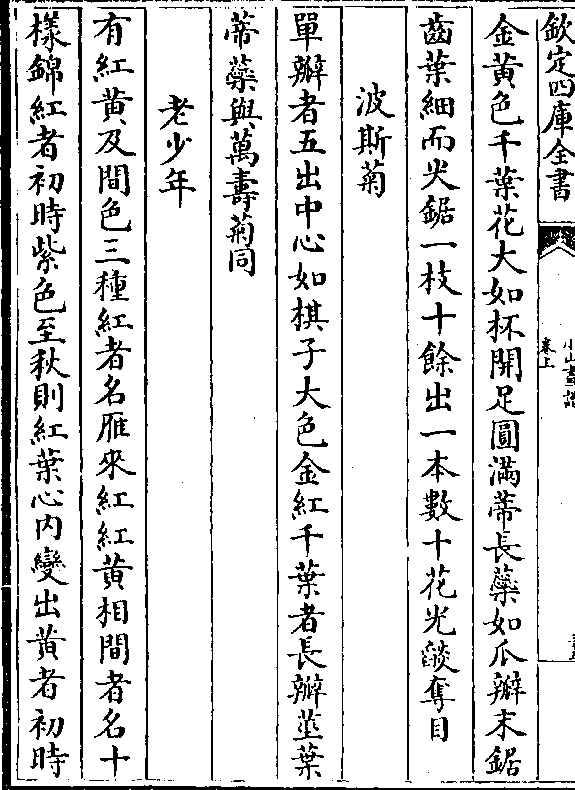 欽定四庫全書
小山畫譜
卷上
金黃色千葉花大如杯開足圓滿蒂長蘂如瓜瓣末鋸
齒葉細而尖鋸一枝十餘出一本數十花光燄奪目
波斯菊
單瓣者五出中心如棋子大色金紅千葉者長瓣莖葉
蒂蘂與萬壽菊同
老少年
有紅黃及間色三種紅者名雁來紅紅黃相間者名十
樣錦紅者初時紫色至秋則紅葉心內變出黃者初時